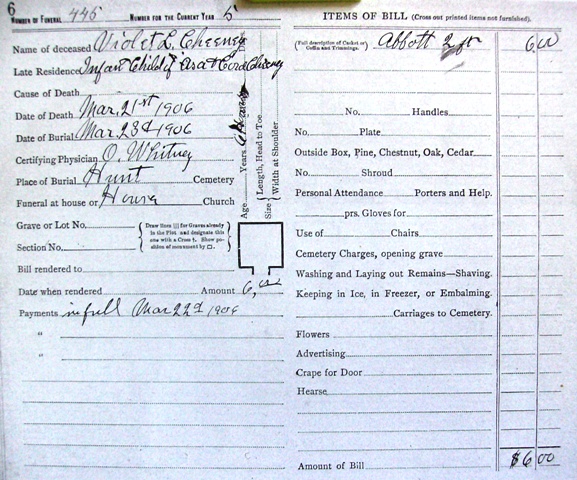 6
NUMBER OF FUNERAL 445 NUMBER FOR THE CURRENT YEAR 5
Name of deceased Violet L. Cheeney
Late Residence Infant Child of Asa & Cora Cheeney
Cause of Death
Date of Death Mar. 21st 1906
Date of Burial Mar. 23d 1906
Certifying Physician O. Whitney
Place of Burial Hunt Cemetery
Funeral at house or House Church
Age Years
Size Length, Head to Toe
Width at Shoulder
Grave or Lot No.
Section No.
Draw lines for Graves already in the Plot and designate this one with a Cross †. Show position of monument by □.
Bill rendered to
Date when rendered Amount 6,00
Payments in full Mar 22d 1906
"
"
ITEMS OF BILL (Cross out printed items not furnished).
(Full description of Casket or Coffin and Trimmings. Abbott 2 ft 6 00
No. Handles
No. Plate
Outside Box, Pine, Chestnut, Oak, Cedar
No. Shroud
Personal Attendance Porters and Help.
prs. Gloves for
Use of Chairs
Cemetery Charges, opening grave
Washing and Laying out Remains—Shaving.
Keeping in Ice, in Freezer, or Embalming.
Carriages to Cemetery.
Flowers
Advertising
Crape for Door
Hearse
Amount of Bill $6 00